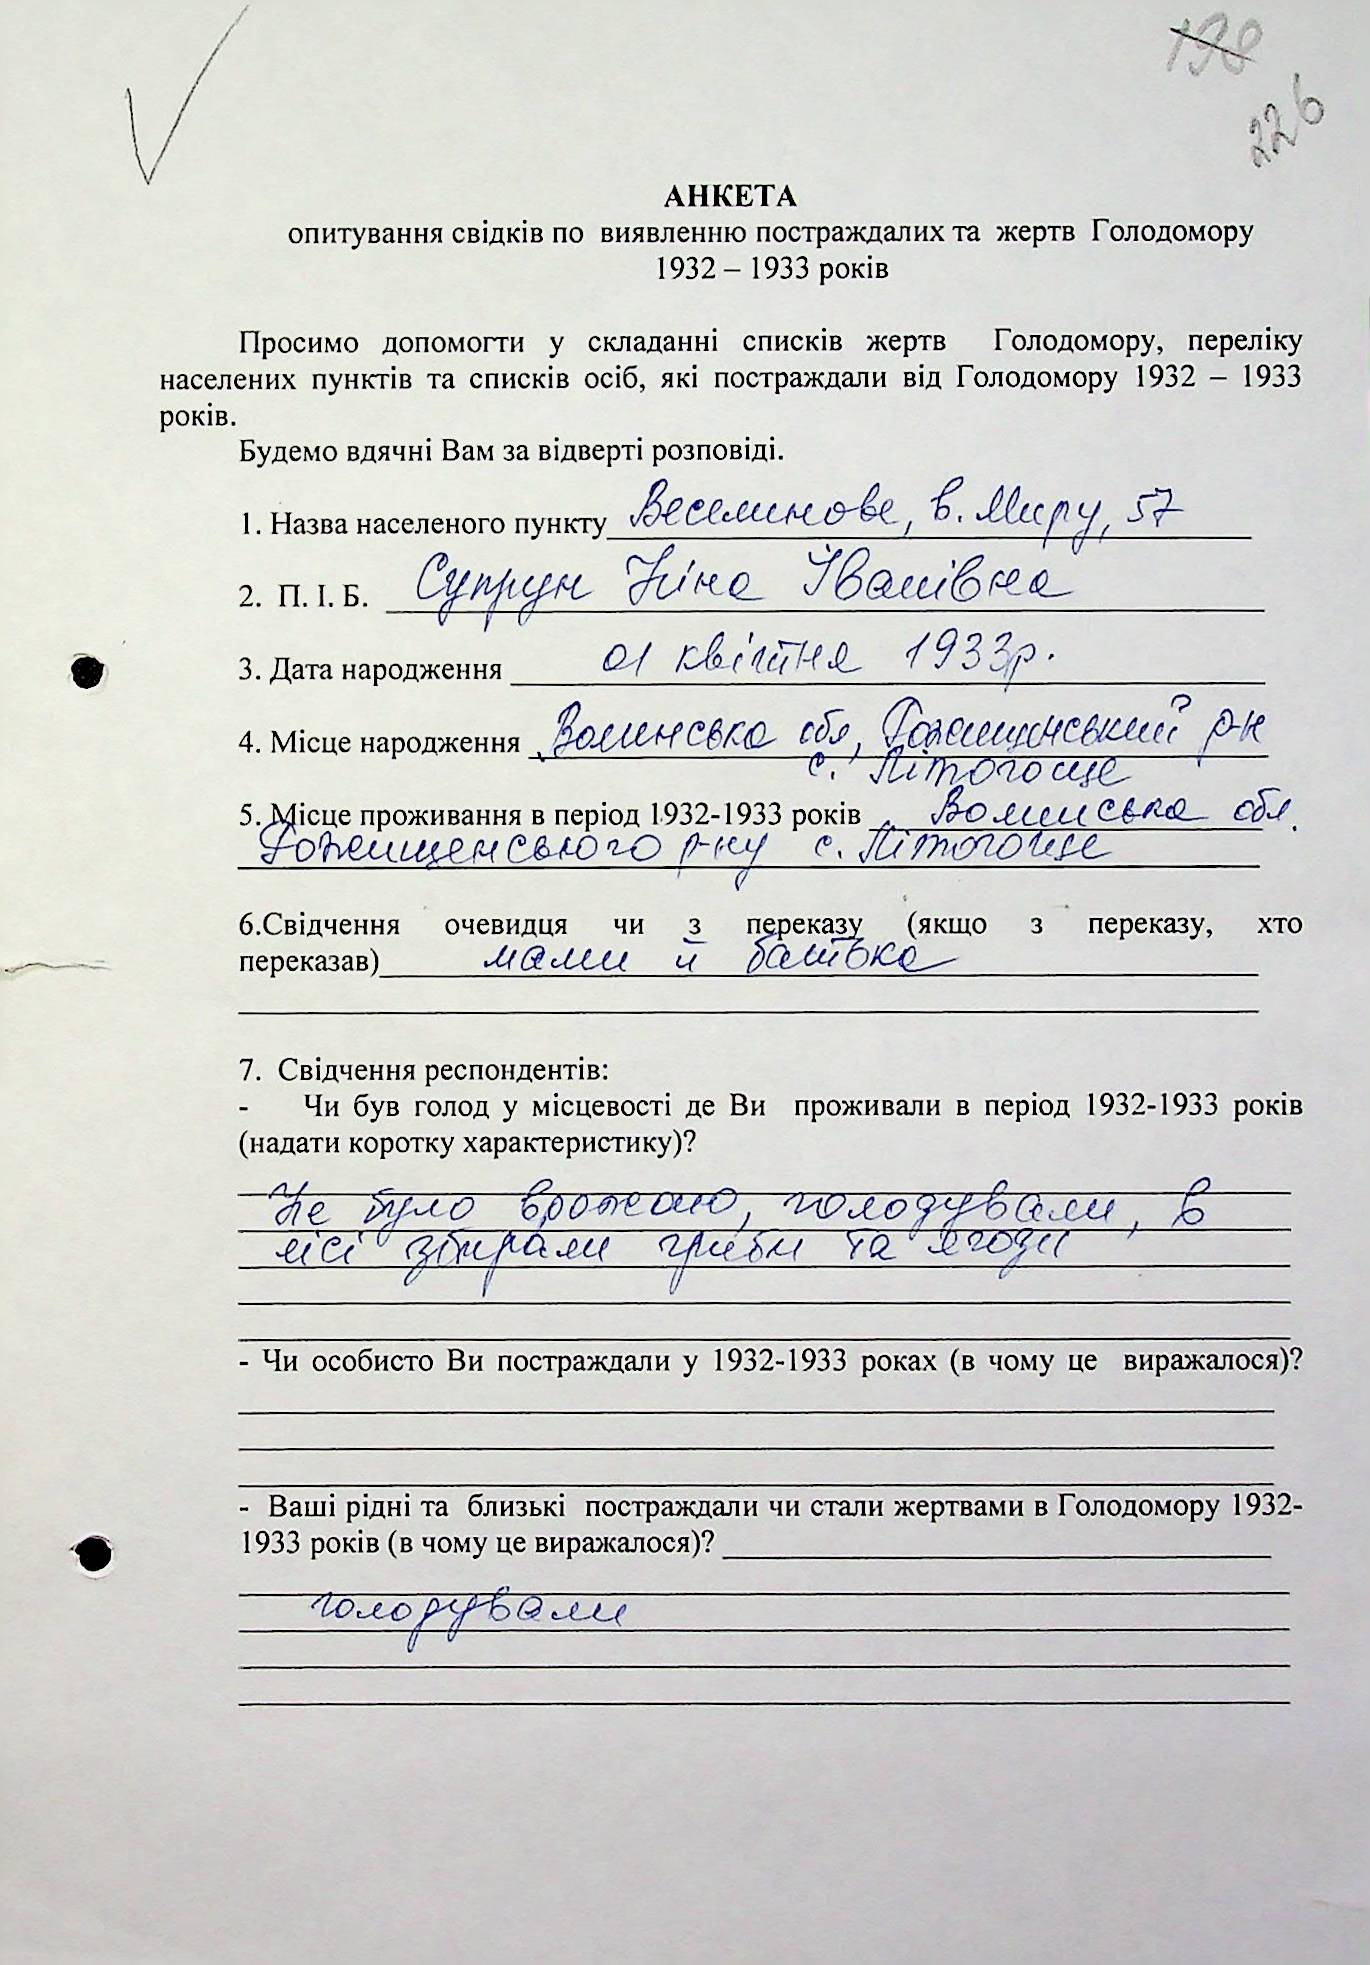 198
226
АНКЕТА
опитування свідків по виявленню постраждалих та жертв Голодомору
1932 – 1933 років
Просимо допомогти у складанні списків жертв Голодомору, переліку
населених пунктів та списків осіб, які постраждали від Голодомору 1932 – 1933
років.
Будемо вдячні Вам за відверті розповіді.
1. Назва населеного пункту Веселинове, в. Миру, 57
2. П. І. Б. Супрун Ніна Іванівна
3. Дата народження 01 квітня 1933р.
4. Місце народження Волинська обл, Рожищинський р-н
с. Літогоще
5. Місце проживання в період 1932-1933 років Волинська обл.
Рожещенського р-ну с. Літогоще
6.Свідчення очевидця чи з переказу (якщо з переказу, хто
переказав) мами й батька
7. Свідчення респондентів:
- Чи був голод у місцевості де Ви проживали в період 1932-1933 років
(надати коротку характеристику)?
Не було врожаю, голодували, в
лісі збирали гриби та ягоди
- Чи особисто Ви постраждали у 1932-1933 роках (в чому це виражалося)?
- Ваші рідні та близькі постраждали чи стали жертвами в Голодомору 1932-
1933 років (в чому це виражалося)?
голодували